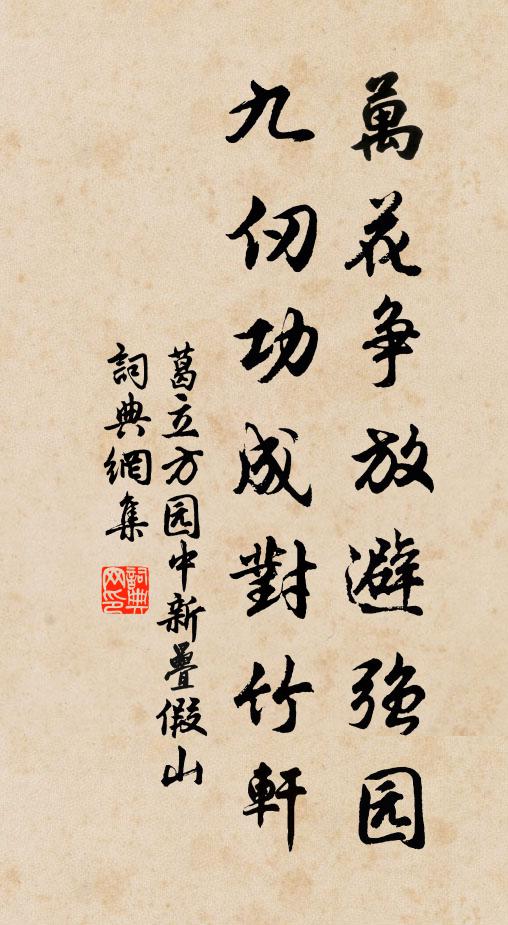 萬花争放避强园
九仞功成對竹軒
葛立方园中新疊假山
詞典網集
詞典网印